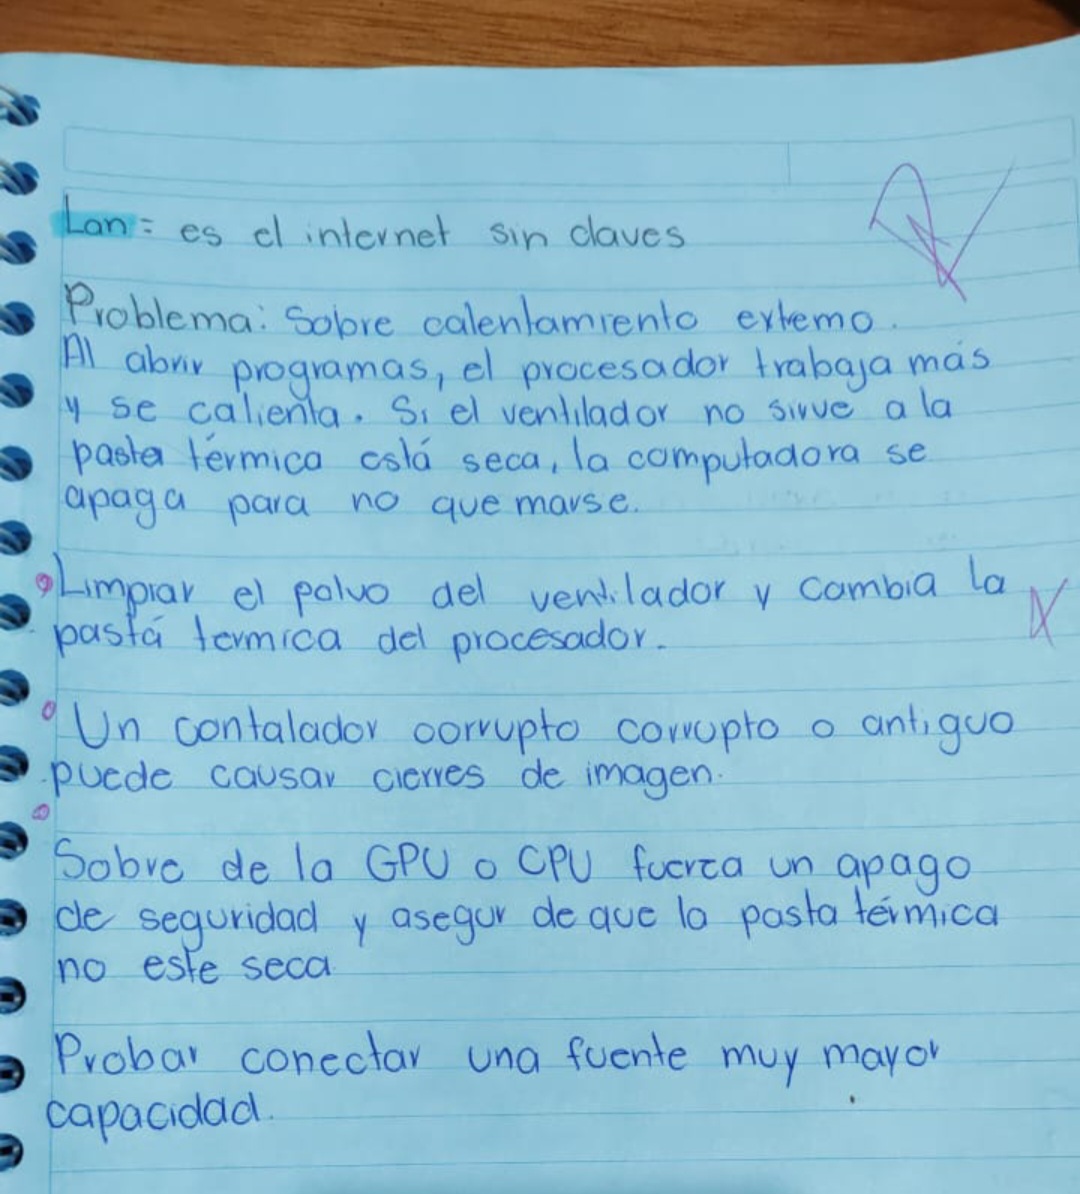 Lan = es el internet sin claves
Problema: Sobre calentamiento extemo.
Al abrir programas, el procesador trabaja más
y se calienta. Si el ventilador no sirve a la
pasta térmica está seca, la computadora se
apaga para no que marse.
Limpiar el polvo del ventilador y cambia la
pastá termica del procesador.
Un contalador corrupto corrupto o antiguo
puede causar cierres de imagen.
Sobre de la GPU o CPU fuerza un apago
de seguridad y asegur de que la pasta térmica
no este seca
Probar conectar una fuente muy mayor
capacidad.